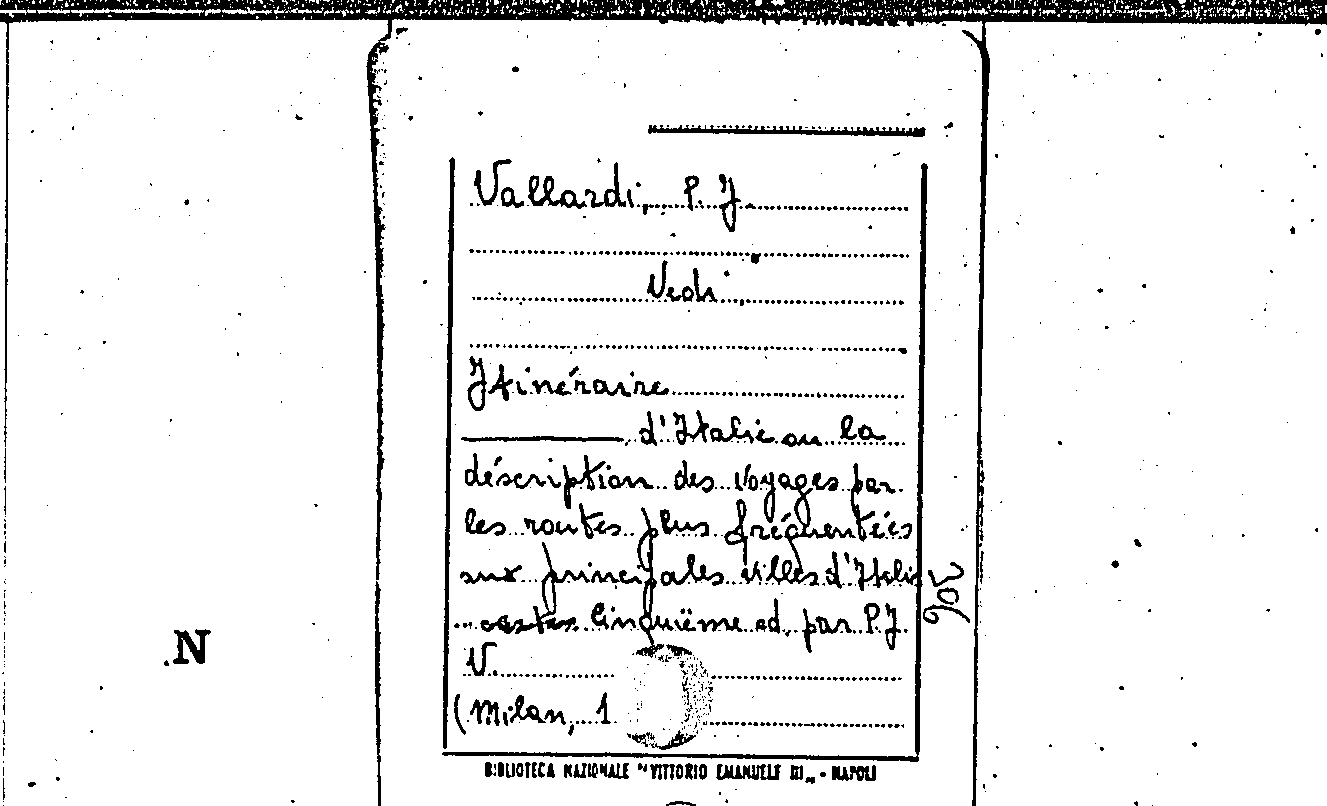 Vallardi, P. J.
Vedi:
Itinéraire
d'Italie ou la
déscription des voyages par
les routes plus fréquentées
aux principales villes d'Italie
... cinquième ed. par P. J.
V.
(Milan, 1
BIBLIOTECA NAZIONALE "VITTORIO EMANUELE III" - NAPOLI
N